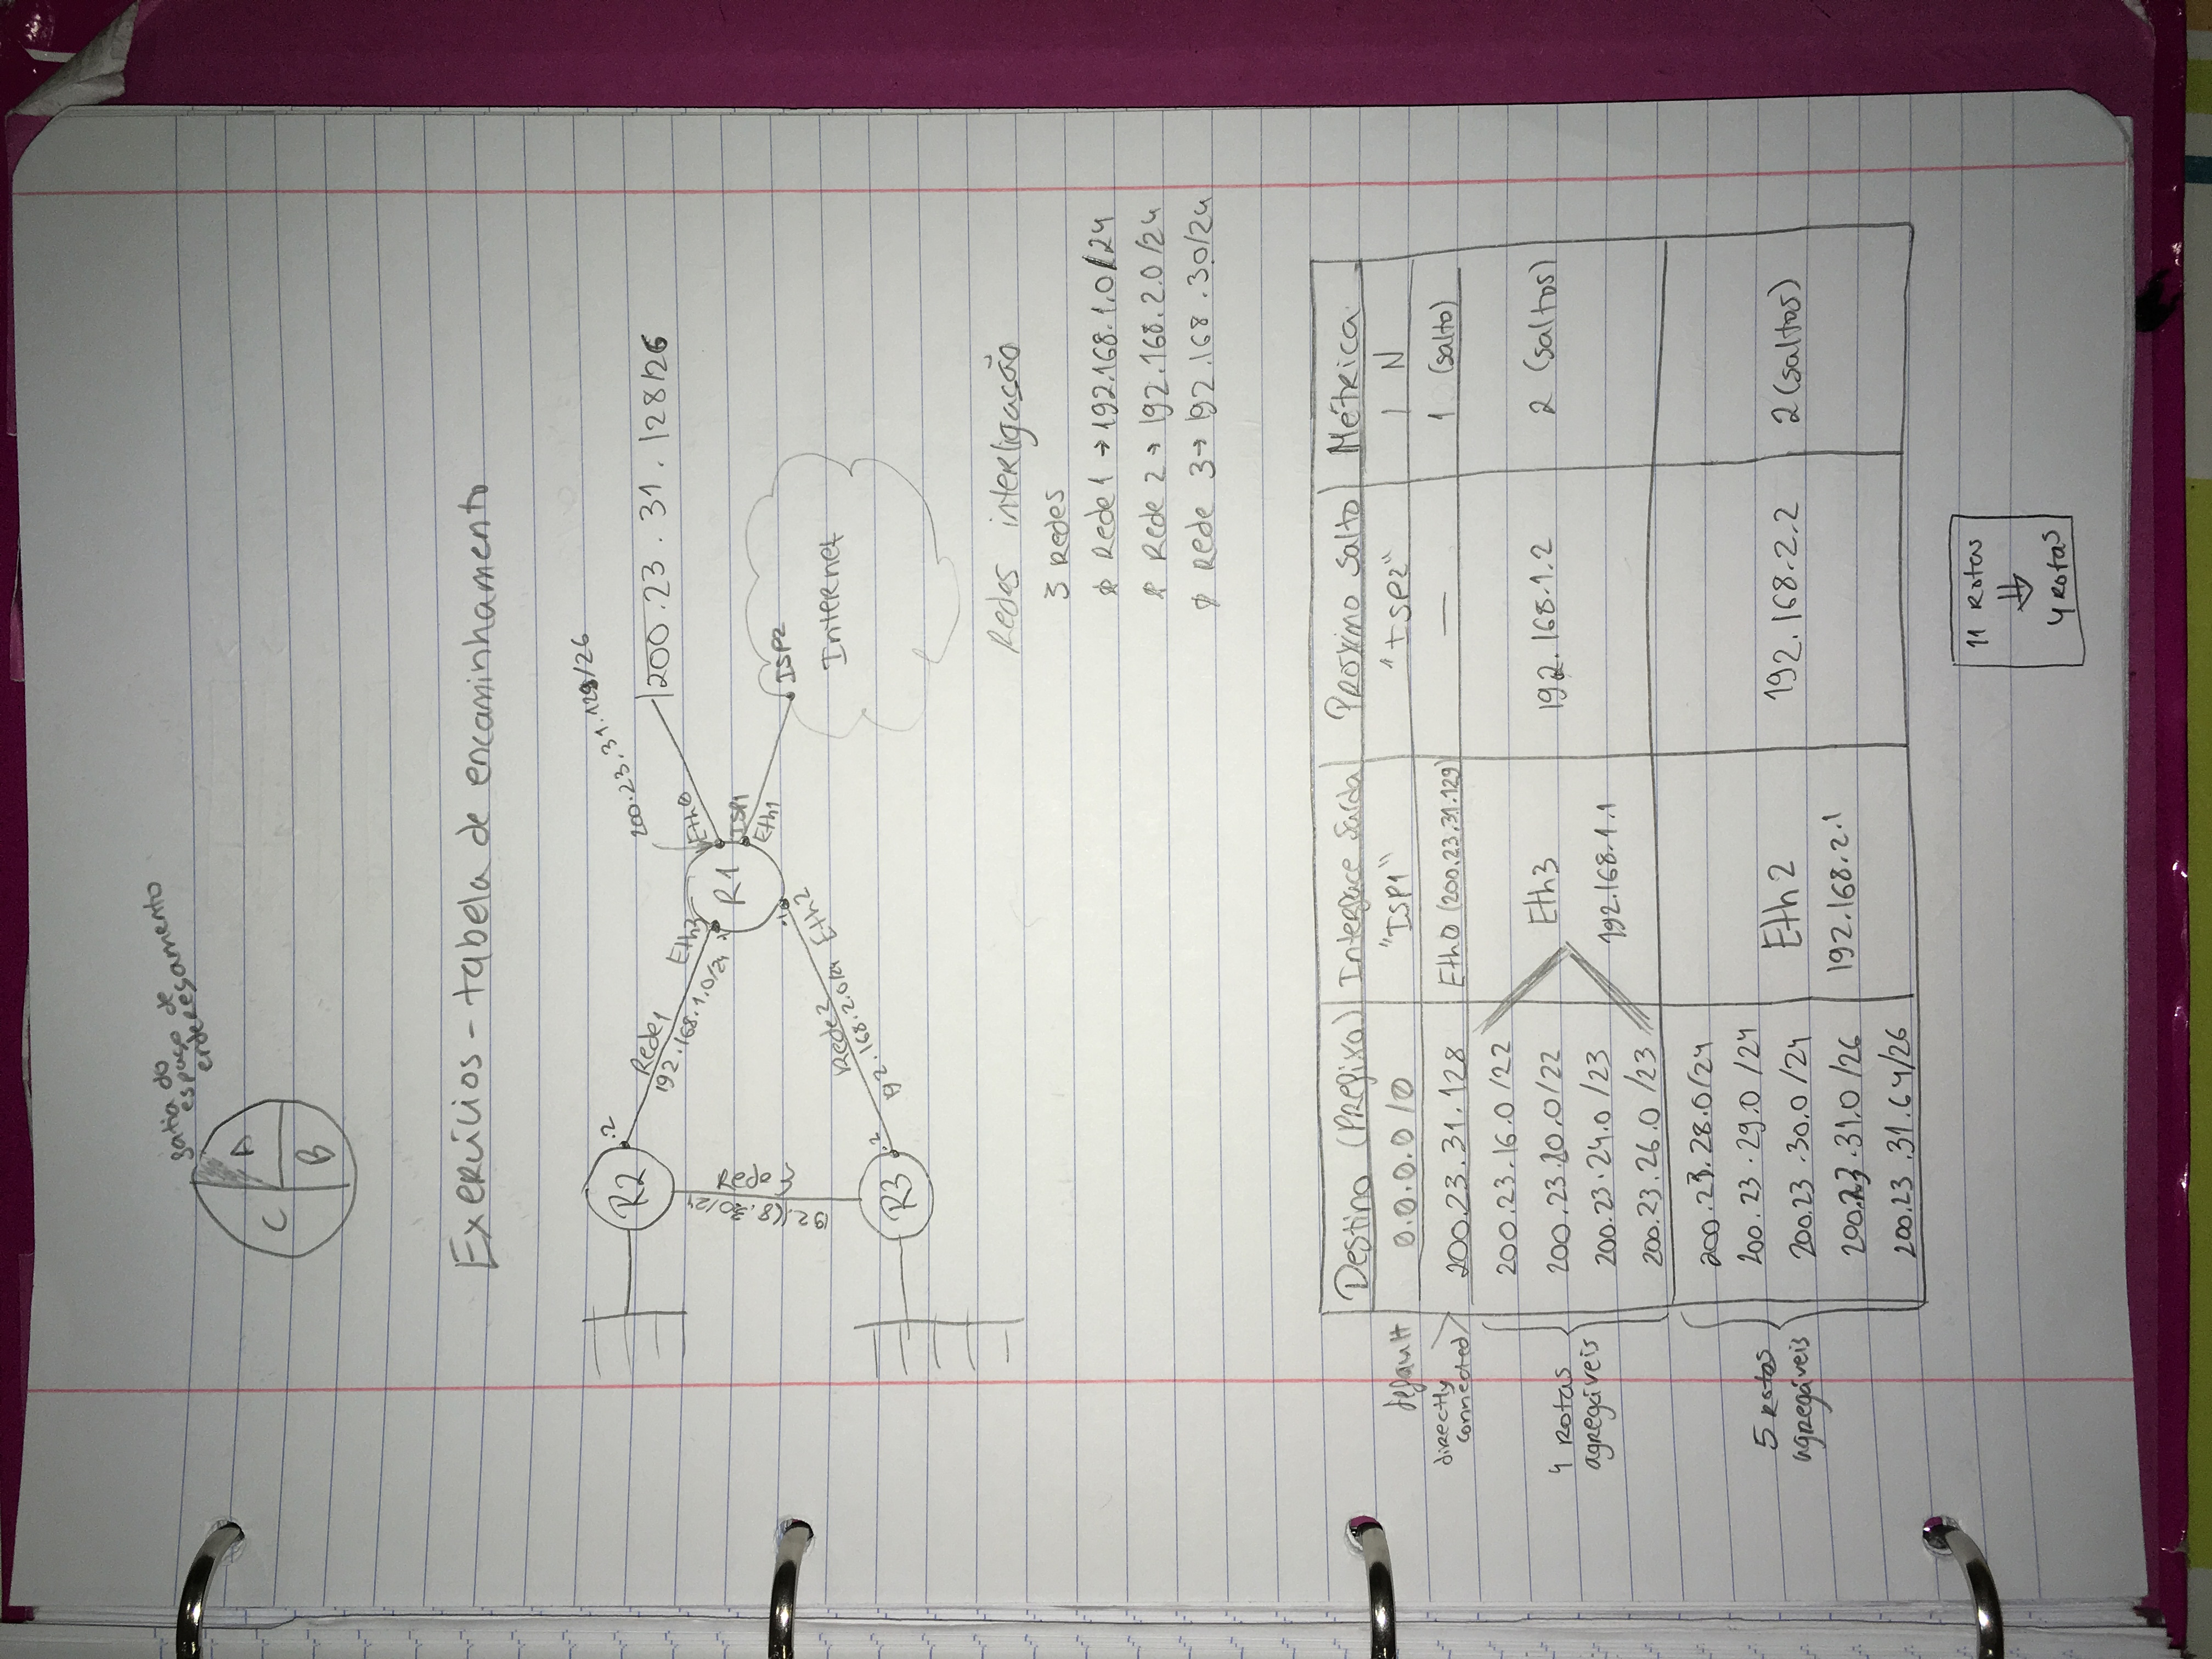 fatia do
espaço de
endereçamento
A
C
B
Exercícios - tabela de encaminhamento
R2
.2
Rede1
192.168.1.0/24
Eth3
.1
R1
200.23.31.129/26
Eth0
200.23.31.128/26
ISP1
Eth1
ISP2
Internet
192.168.3.0/24
Rede 3
.1
Eth2
Rede2
192.168.2.0/24
R3
.2
Redes interligação
3 Redes
Rede 1 → 192.168.1.0/24
Rede 2 → 192.168.2.0/24
Rede 3 → 192.168.3.0/24
Destino (Prefixo) Interface Saída Próximo Salto Métrica
default 0.0.0.0/0 "ISP1" "ISP2" 1 N
directly
connected
200.23.31.128 Eth0 (200.23.31.129) — 1 (salto)
4 rotas
agregáveis
200.23.16.0/22
200.23.20.0/22
200.23.24.0/23
200.23.26.0/23
Eth3
192.168.1.1
192.168.1.2
2 (saltos)
5 rotas
agregáveis
200.23.28.0/24
200.23.29.0/24
200.23.30.0/24
200.23.31.0/26
200.23.31.64/26
Eth2
192.168.2.1
192.168.2.2
2 (saltos)
11 rotas
⇓
4 rotas